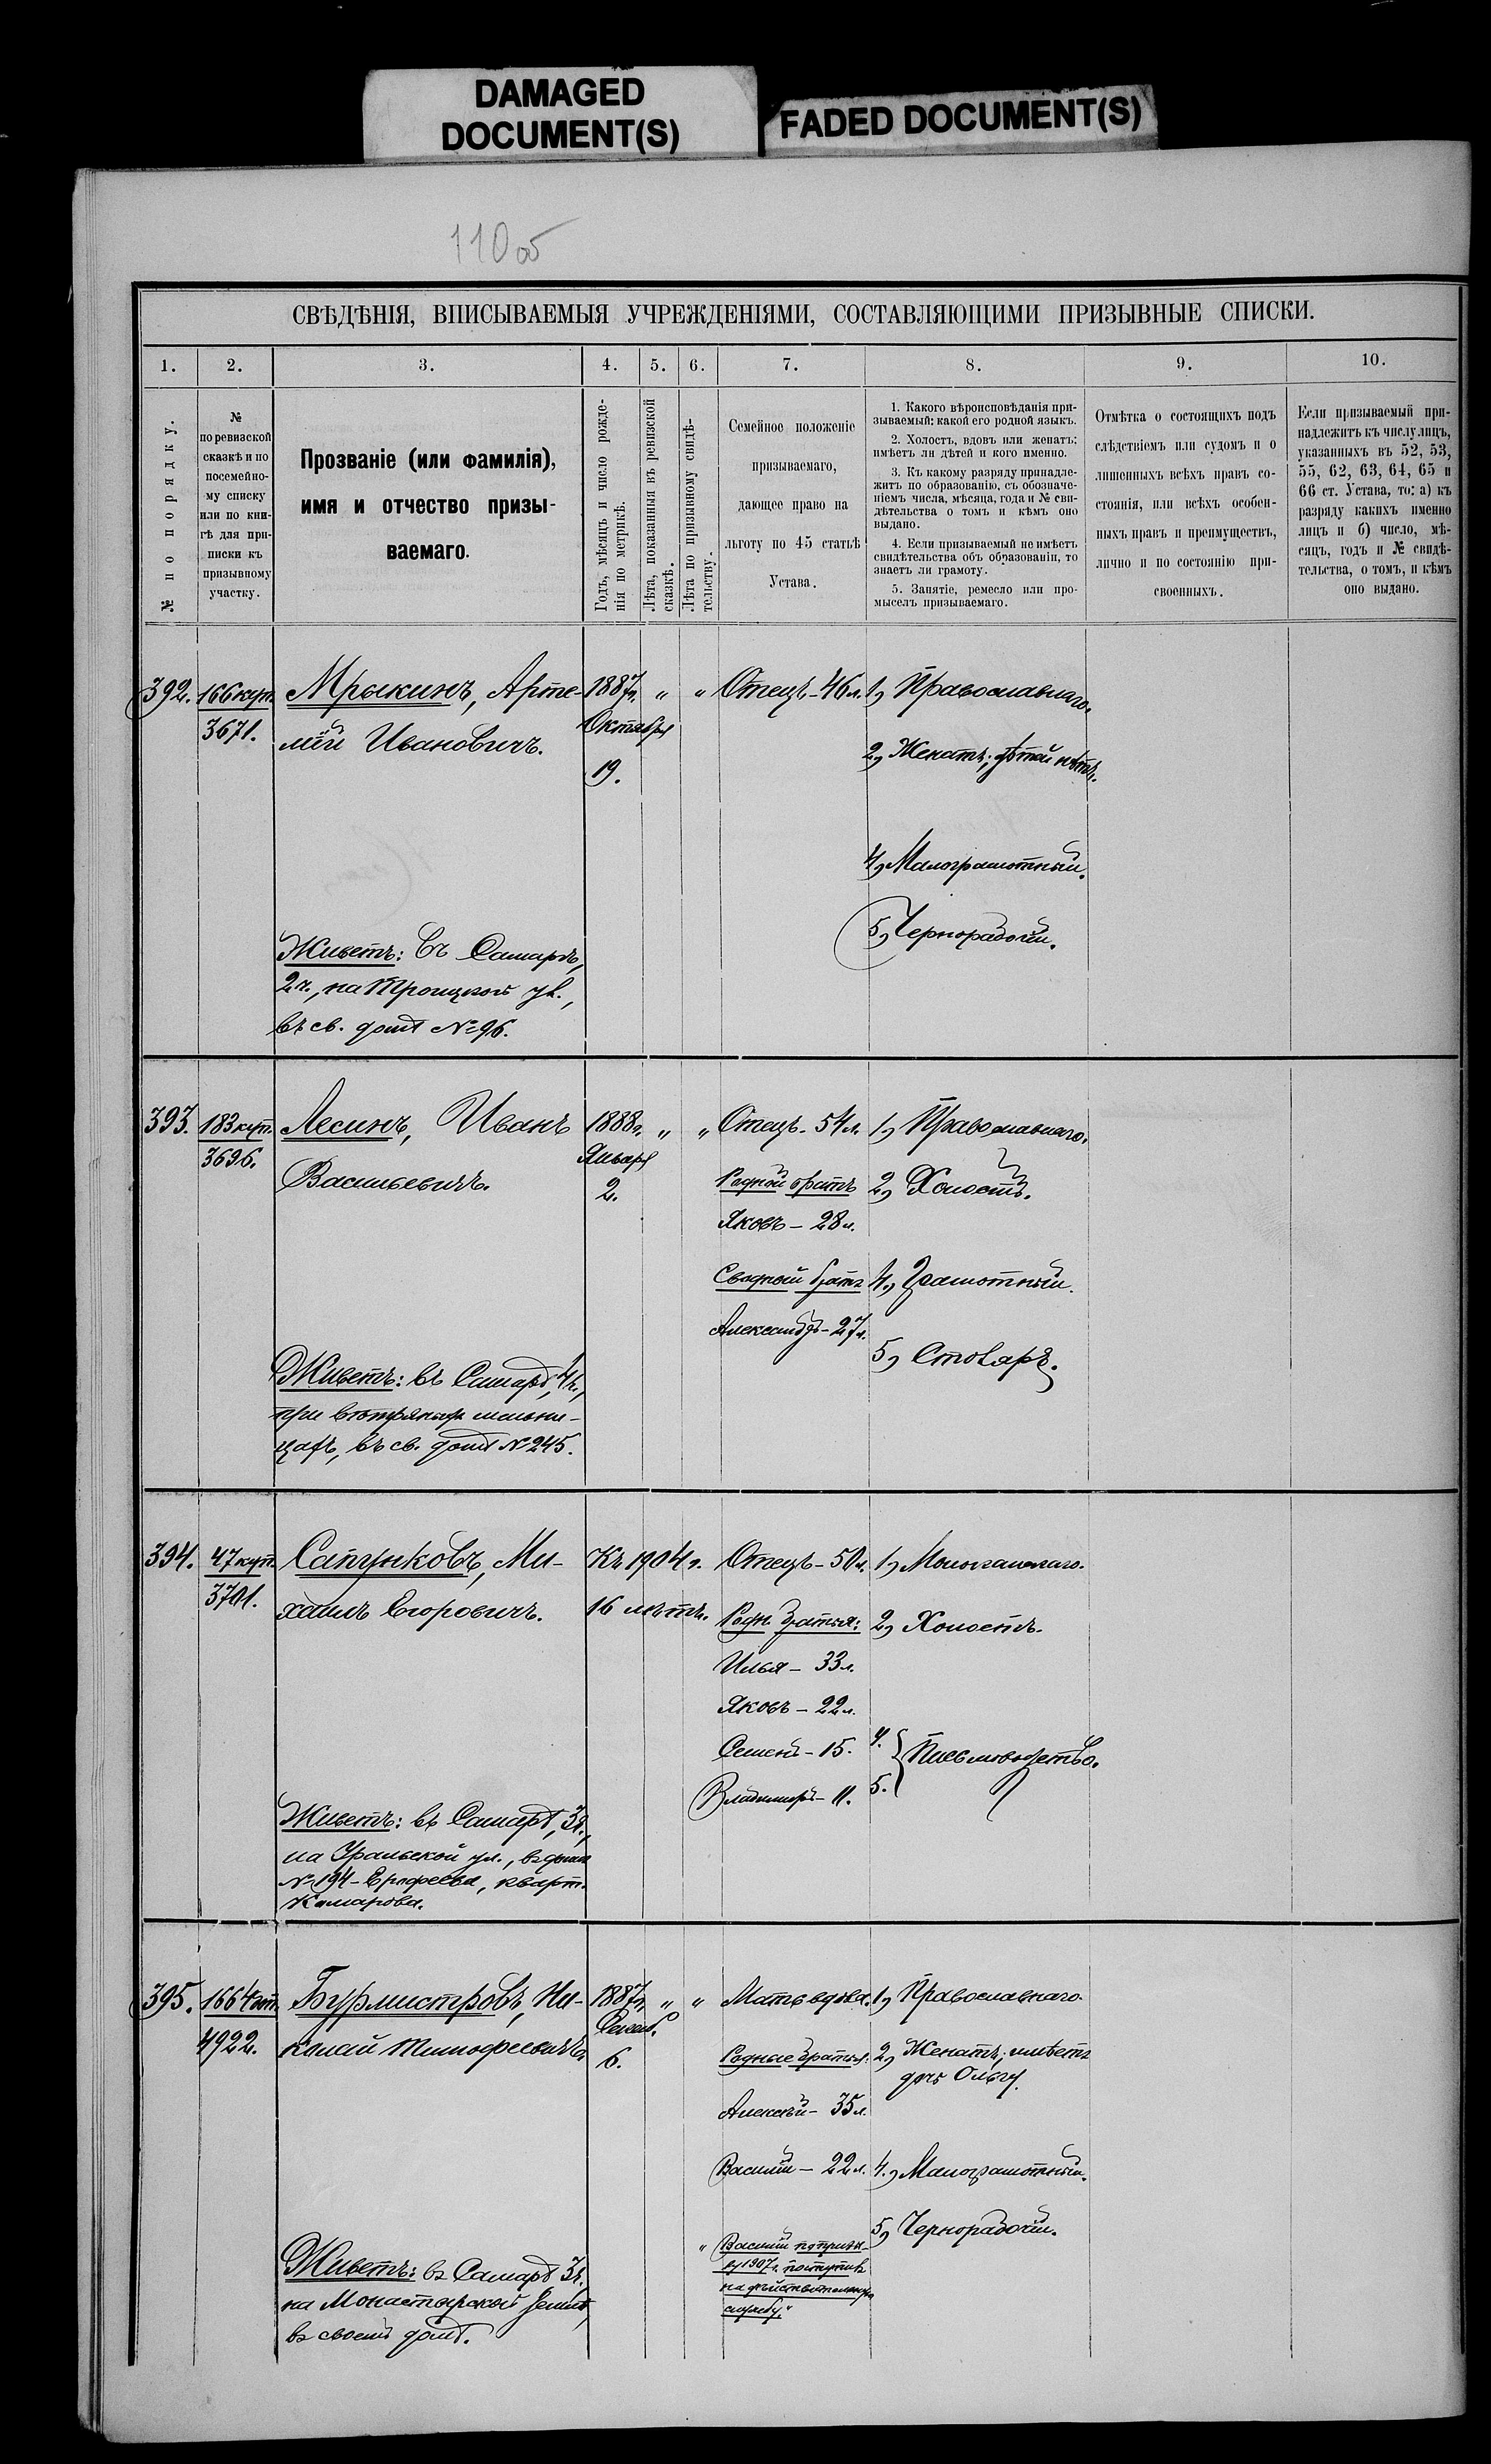 DAMAGED
DOCUMENT(S)
FADED DOCUMENT(S)
110 об
СВѢДѢНІЯ, ВПИСЫВАЕМЫЯ УЧРЕЖДЕНІЯМИ, СОСТАВЛЯЮЩИМИ ПРИЗЫВНЫЕ СПИСКИ.
1.
2.
3.
4.
5.
6.
7.
8.
9.
10.
№ по порядку.
№
по ревизской
сказкѣ и по
посемейно-
му списку
или по кни-
гѣ для при-
писки къ
призывному
участку.
Прозваніе (или фамилія),
имя и отчество призы-
ваемаго.
Годъ, мѣсяцъ и число рожде-
нія по метрикѣ.
Лѣта, показанныя въ ревизской
сказкѣ.
Лѣта по призывному свидѣ-
тельству.
Семейное положеніе
призываемаго,
дающее право на
льготу по 45 статьѣ
Устава.
1. Какого вѣроисповѣданія при-
зываемый: какой его родной языкъ.
2. Холостъ, вдовъ или женатъ:
имѣетъ ли дѣтей и кого именно.
3. Къ какому разряду принадле-
житъ по образованію, съ обозначе-
ніемъ числа, мѣсяца, года и № сви-
дѣтельства о томъ и кѣмъ оно
выдано.
4. Если призываемый не имѣетъ
свидѣтельства объ образованіи, то
знаетъ ли грамоту.
5. Занятіе, ремесло или про-
мыселъ призываемаго.
Отмѣтка о состоящихъ подъ
слѣдствіемъ или судомъ и о
лишенныхъ всѣхъ правъ со-
стоянія, или всѣхъ особен-
ныхъ правъ и преимуществъ,
лично и по состоянію при-
своенныхъ.
Если призываемый при-
надлежитъ къ числу лицъ,
указанныхъ въ 52, 53,
55, 62, 63, 64, 65 и
66 ст. Устава, то: а) къ
разряду какихъ именно
лицъ и б) число, мѣ-
сяцъ, годъ и № свидѣ-
тельства, о томъ, и кѣмъ
оно выдано.
392.
166 куп.
3671.
Мрыкинъ, Арте-
мій Ивановичъ.
Живетъ: въ Самарѣ,
2 ч., на Троицкой ул.,
въ св. домѣ № 96.
1887 г.
Октября
19.
" "
Отецъ - 46 л.
1, Православнаго.
2, Женатъ; дѣтей нѣтъ.
4, Малограмотный.
5, Чернорабочій.
393.
183 куп.
3696.
Лесинъ, Иванъ
Васильевичъ.
Живетъ: въ Самарѣ, 4 ч.,
при вѣтряныхъ мельни-
цахъ, въ св. домѣ № 245.
1888 г.
Января
2.
" "
Отецъ - 54 л.
Родной братъ
Яковъ - 28 л.
Сводный братъ
Александръ - 27 л.
1, Православнаго.
2, Холостъ.
4, Грамотный.
5, Столяръ.
394.
47 куп.
3701.
Сапунковъ, Ми-
хаилъ Егоровичъ.
Живетъ: въ Самарѣ, 3 ч.,
на Уральской ул., въ домѣ
№ 194 - Ерофеева, кварт.
Комарова.
Къ 1904 г.
16 лѣтъ.
Отецъ - 50 л.
Родн. братья:
Илья - 33 л.
Яковъ - 22 л.
Семенъ - 15.
Владимиръ - 11.
1, Молоканскаго.
2, Холостъ.
4.
5.
Письмоводство.
395.
1664
4922.
Бурмистровъ, Ни-
колай Тимофеевичъ
Живетъ: въ Самарѣ 3 ч.,
на Монастырской землѣ,
въ своемъ домѣ.
1887 г.
6.
" "
Мать вдова.
Родные братья:
Алексѣй - 35 л.
Василій - 22 л.
" Василій по призы-
ву 1907 г. поступилъ
на дѣйствительную
службу."
1, Православнаго.
2, Женатъ; имѣетъ
дочь Ольгу.
4, Малограмотный.
5, Чернорабочій.